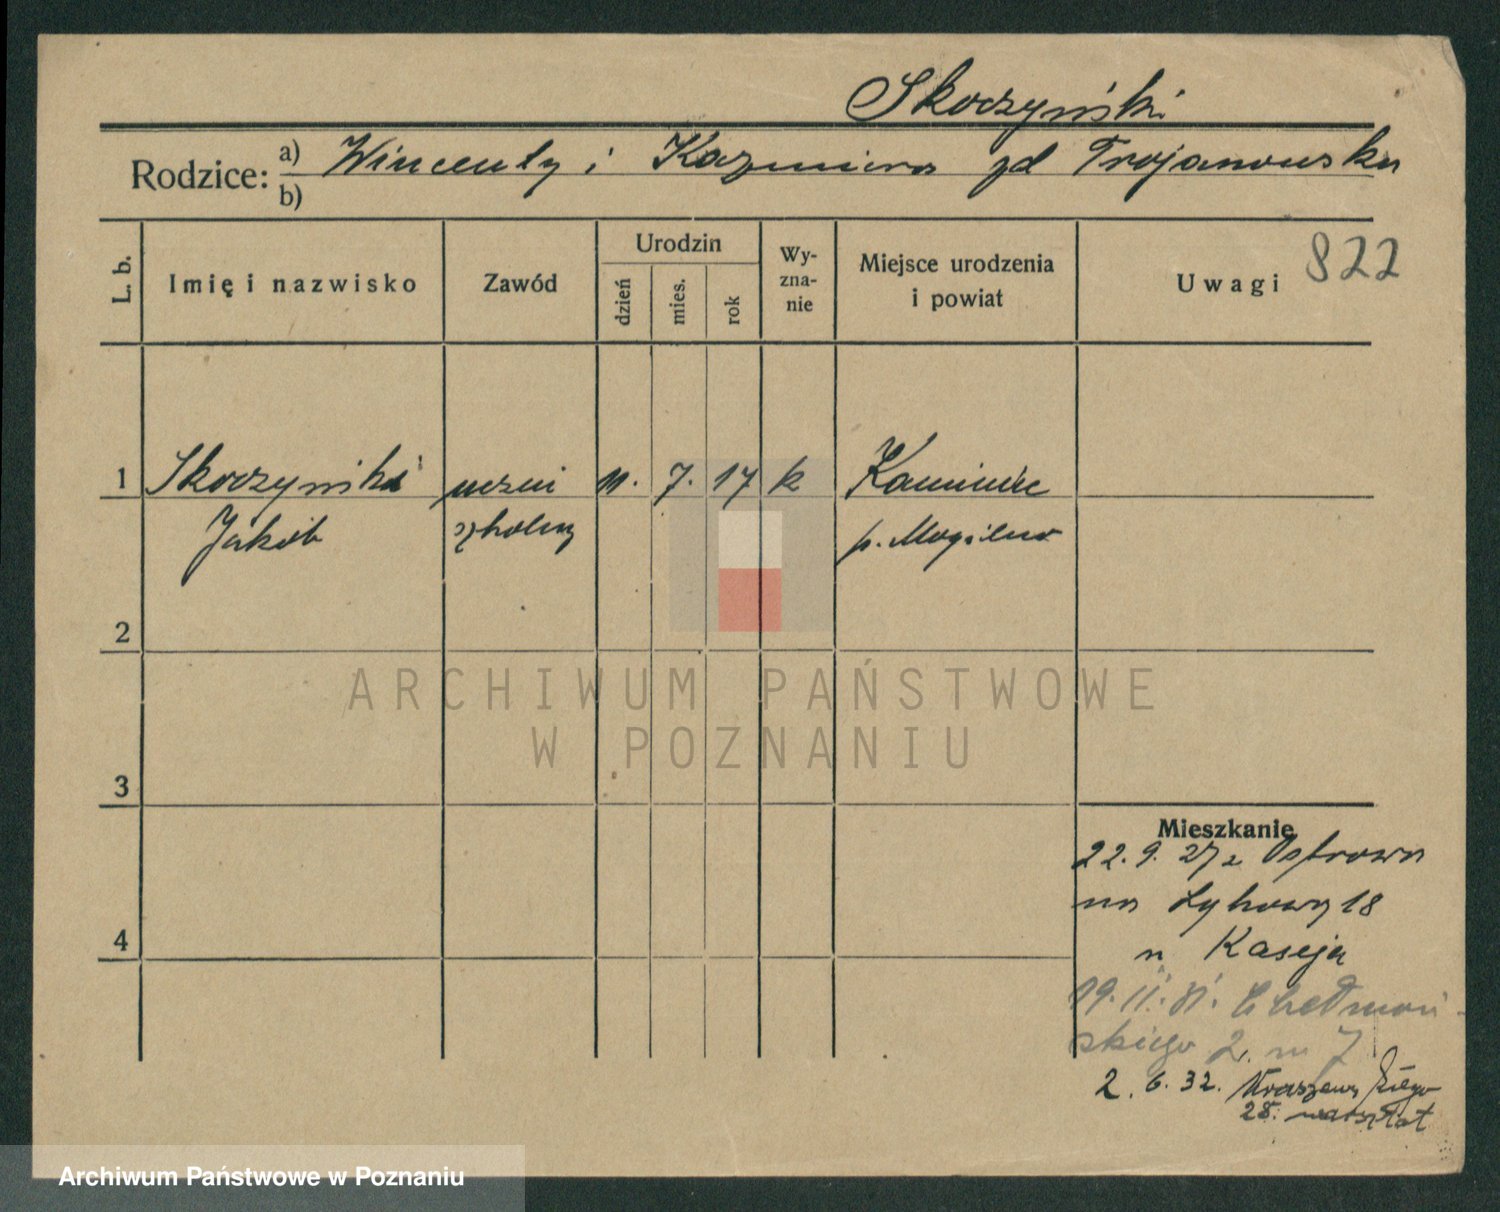 Skoczyński
Rodzice: a) Wincenty i Kazmiera zd Trojanowska
b)
L. b.
Imię i nazwisko
Zawód
Urodzin
dzień
mies.
rok
Wy-
zna-
nie
Miejsce urodzenia
i powiat
Uwagi
822
1
Skoczyński
Jakób
uczeń
szkolny
11.
7.
17
k
Kamieniec
p. Mogilno
2
3
4
Mieszkanie
22.9.27 z Ostrowa
na Łąkową 18
u Kaseja
19.II.31. Chełmoń-
skiego 2. m 7
2.6.32. Kraszewskiego
28. warsztat
ARCHIWUM PAŃSTWOWE
W POZNANIU
Archiwum Państwowe w Poznaniu